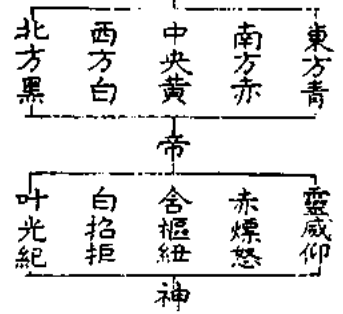 東方青
南方赤
中央黃
西方白
北方黑
帝
靈威仰
赤熛怒
含樞紐
白招拒
叶光紀
神